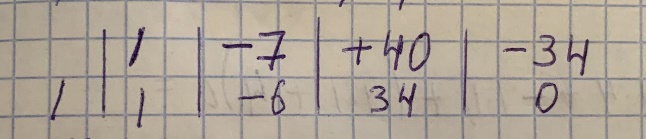 1 | -7 | +40 | -34
1 | 1 | -6 | 34 | 0